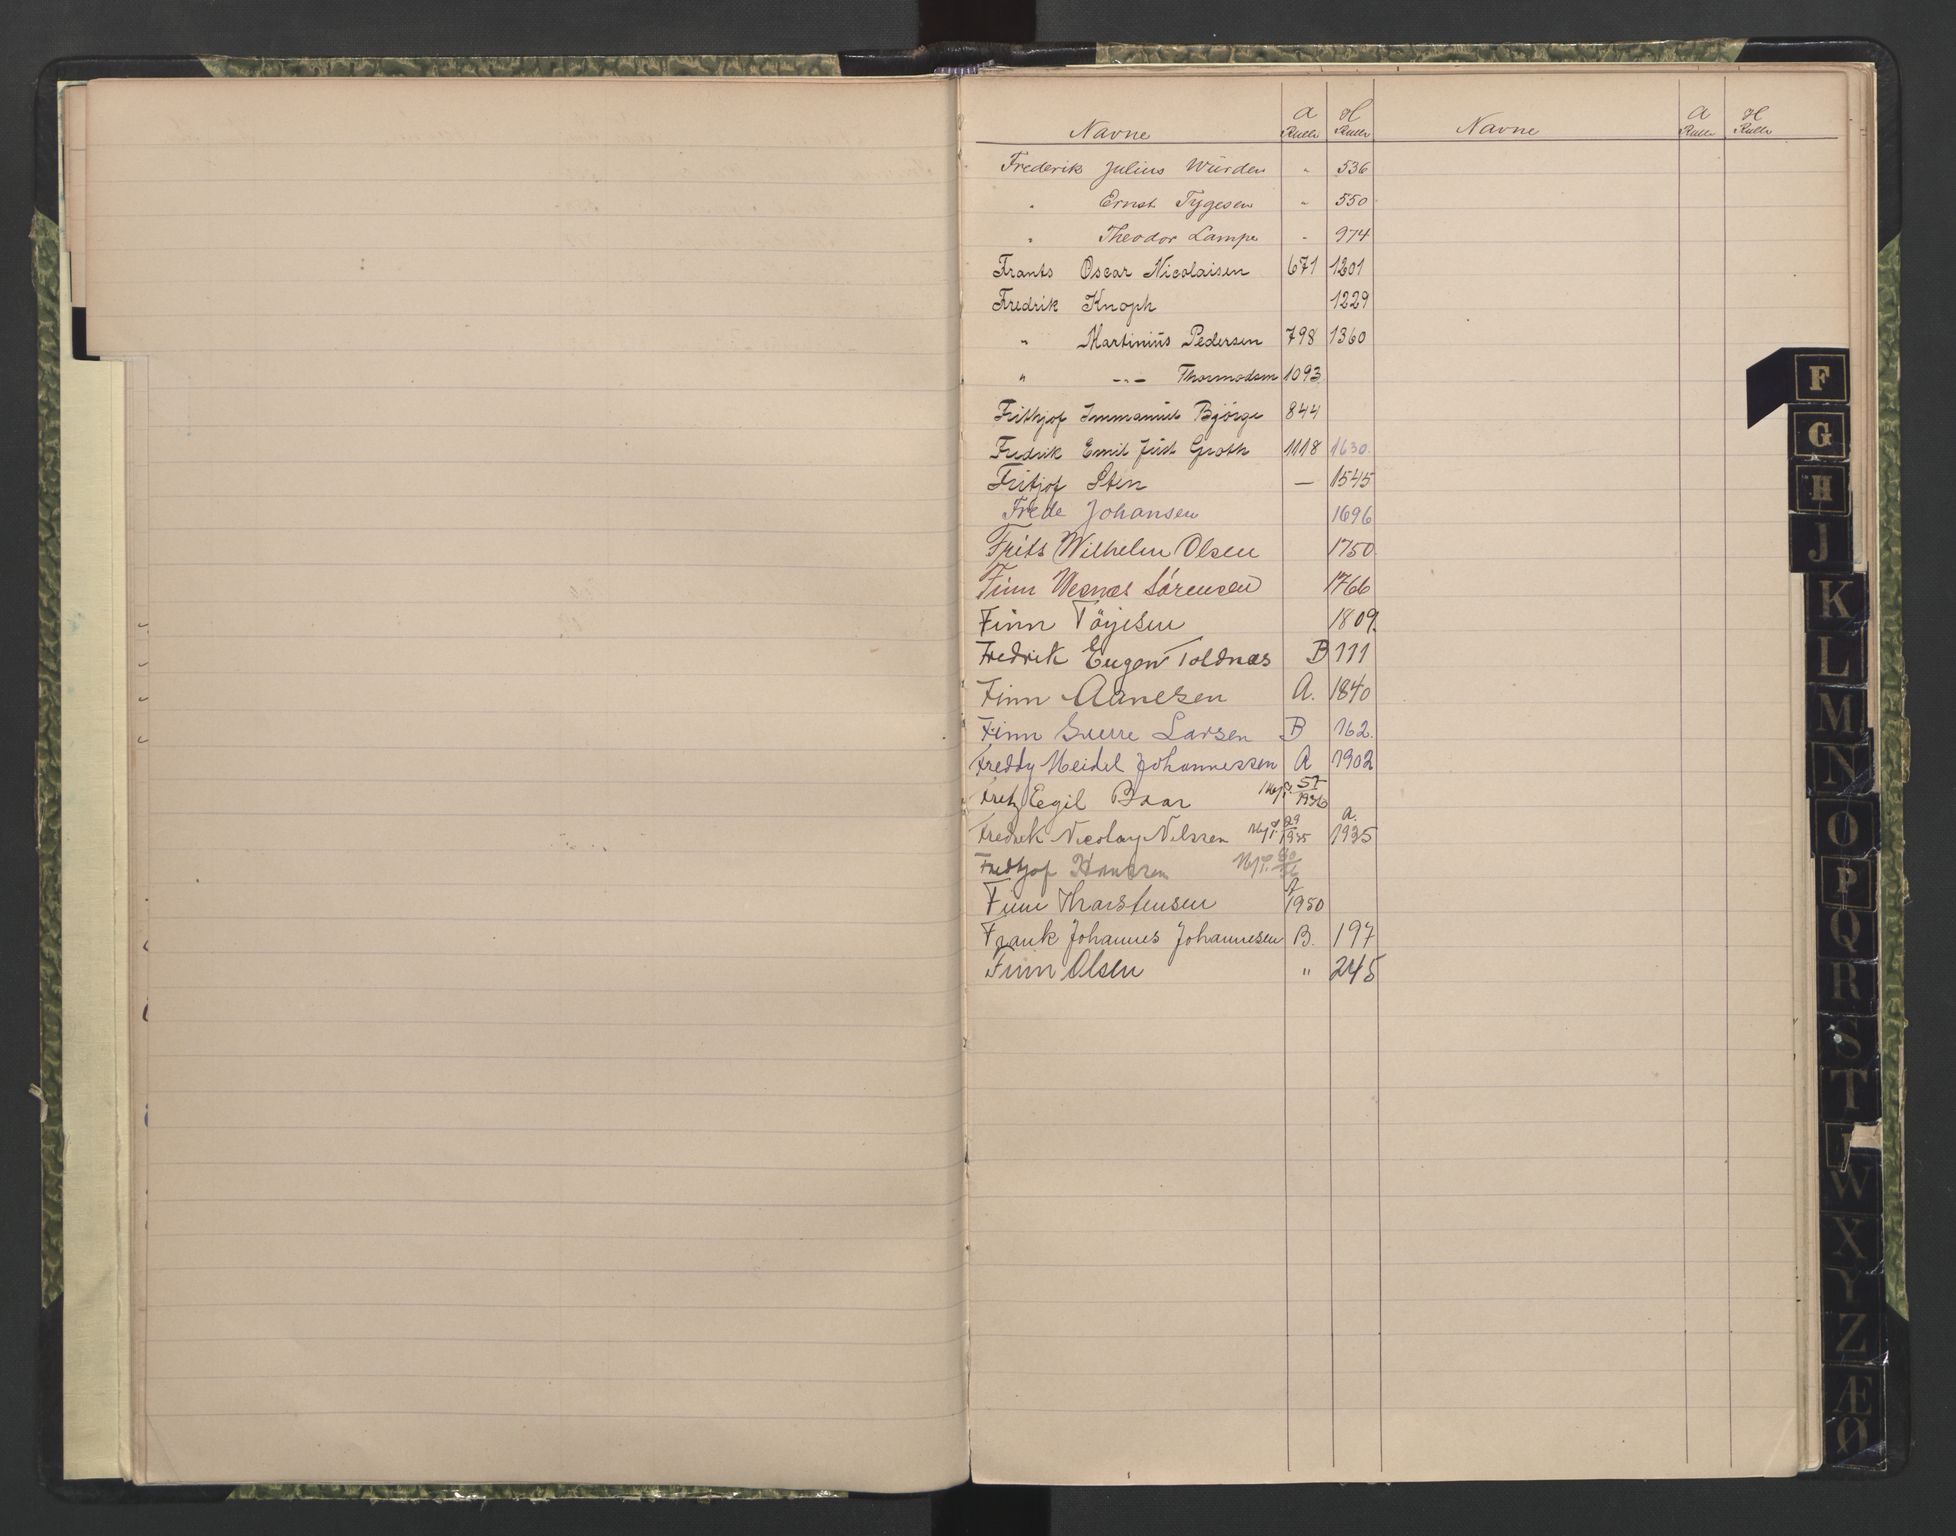 Navne A Rulle H Rulle Navne A Rulle H Rulle
Frederik Julius Würden " 536
" Ernst Tygesen " 550
" Theodor Lampe " 974
Frants Oscar Nicolaisen 671 1201
Fredrik Knoph 1229
" Martinius Pedersen 798 1360
" -"- Thormodsen 1093
Frithjof Immanuel Bjørge 844
Fredrik Emil Just Groth 1118 1630.
Fritjof Sten — 1545
Frede Johansen 1696
Frits Wilhelm Olsen 1750.
Finn Wesnes Sørensen 1766
Finn Tøyesen 1809.
Fredrik Eugen Toldnæs B 111
Finn Aanesen A. 1840
Finn Sverre Larsen B 162.
Freddy Meidel Johannessen A 1902
Fritz Eegil Baar 51 1936
Fredrik Nicolay Nilssen 29 1935 a. 1935
Fridtjof Hanssen
Finn Tharstensen 7 1950
Frank Johannes Johannesen B. 197
Finn Olsen " 245
F
G
H
J
K
L
M
N
O
P
Q
R
S
T
W
X
Y
Z
Æ
Ø